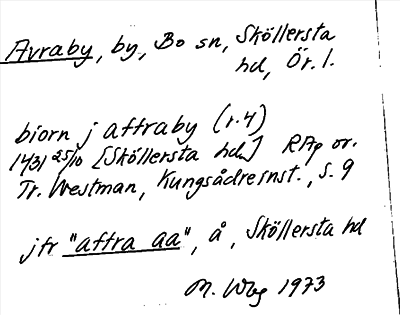 Avraby, by, Bo sn, Sköllersta
hd, Ör. l.
biorn j affraby (r. 4)
1431 25/10 [Sköllersta hd] RAp or.
Tr. Westman, Kungsådreinst., s. 9
jfr "affra aa", å, Sköllersta hd
M. Wbg 1973